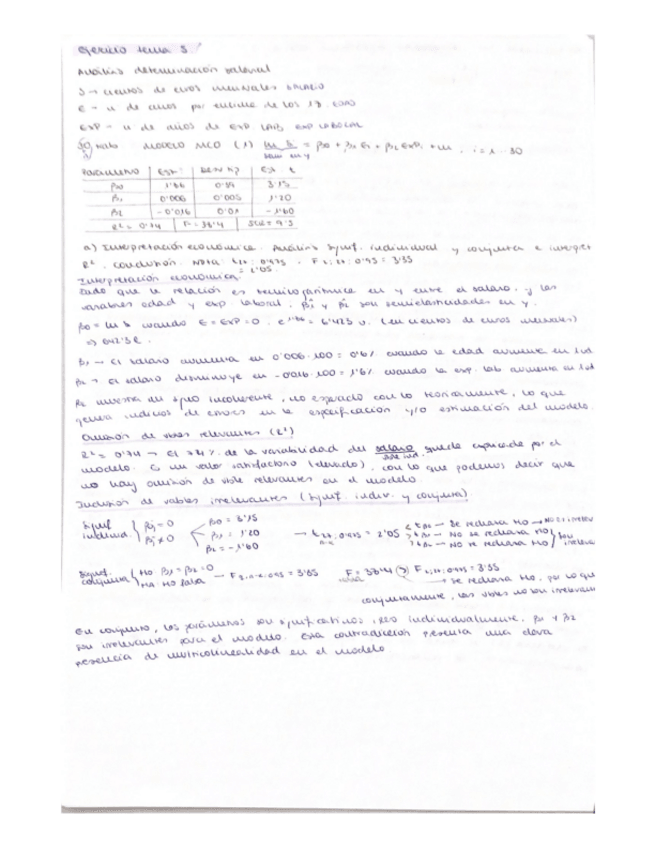 Ejercicio tema 5.
Análisis determinación salarial
S → cientos de euros mensuales SALARIO
E → n de años por encima de los 18 EDAD
EXP → n de años de EXP. LAB. EXP LABORAL
30 indiv MODELO MCO (1) ln S = β0 + β1 E + β2 EXP + u, i = 1...30
Parámetro | Est. | | Est t
β0 | 1'86 | 0'59 | 3'15
β1 | 0'006 | 0'005 | 1'20
β2 | -0'016 | 0'01 | -1'60
R² = 0'74 | F = 38'4 | SCR = 9'3
a) Interpretación económica. Análisis signif. individual y conjunta e interpret
R². Conclusión. NOTA: t27; 0'975 = 2'05. F2; 27; 0'95 = 3'35
Interpretación económica.
Dado que la relación es semilogarítmica en y entre el salario y las
variables edad y exp. laboral, β1 y β2 son semielasticidades en y.
β0 = ln S cuando E = EXP = 0. e^1'86 = 6'423 u. (en cientos de euros mensuales)
=> 642'3 €.
β1 → El salario aumenta en 0'006·100 = 0'6% cuando la edad aumenta en 1ud
β2 → El salario disminuye en -0'016·100 = 1'6% cuando la exp. lab aumenta en 1ud
β2 muestra un signo incoherente, no esperado con lo teóricamente, lo que
genera indicios de errores en la especificación y/o estimación del modelo.
Omisión de vbles relevantes (R²)
R² = 0'74 → El 74% de la variabilidad del salario queda explicada por el
modelo. Es un valor satisfactorio (elevado), con lo que podemos decir que
no hay omisión de vble relevantes en el modelo.
Inclusión de vables irrelevantes (signif. indiv. y conjunta).
Signif individ. { βj = 0 βj ≠ 0 β0 = 3'15 β1 = 1'20 β2 = -1'60 → t27; 0'975 = 2'05 < tβ0 — Se rechaza H0
> tβ1 — No se rechaza H0
> tβ2 — No se rechaza H0
Signif. conjunta { H0 β1 = β2 = 0 HA: No H0 → F2; n-k; 0'95 = 3'35 F = 38'4 > F2; 27; 0'95 = 3'35
→ se rechaza H0, por lo que
conjuntamente, las vbles no son irrelevan
En conjunto, los parámetros son significativos, pero individualmente, β1 y β2
son irrelevantes para el modelo. Esta contradicción presenta una clara
presencia de multicolinealidad en el modelo